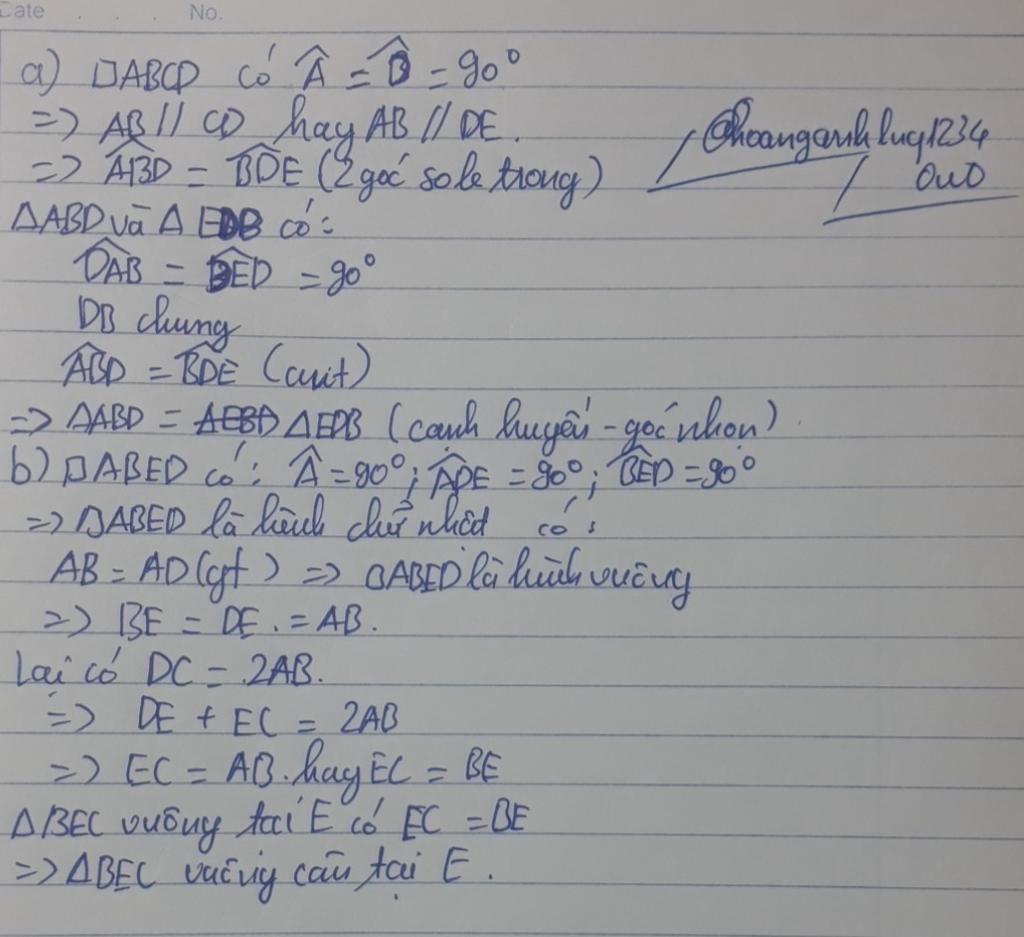 Date . . . No.
a) □ABCD có Â = D̂ = 90°
=> AB // CD hay AB // DE.
=> ABD̂ = BDÊ (2 góc so le trong)
@hoanganhluy1234
OuO
ΔABD và Δ EDB có:
DAB̂ = BED̂ = 90°
DB chung
ABD̂ = BDÊ (cmt)
=> ΔABD = ΔEBD ΔEDB (cạnh huyền - góc nhọn)
b) □ABED có: Â = 90°; ADÊ = 90°; BED̂ = 90°
=> □ABED là hình chữ nhật có:
AB = AD (gt) => □ABED là hình vuông
=> BE = DE. = AB.
Lại có DC = 2AB.
=> DE + EC = 2AB
=> EC = AB. hay EC = BE
ΔBEC vuông tại E có EC = BE
=> ΔBEC vuông cân tại E.